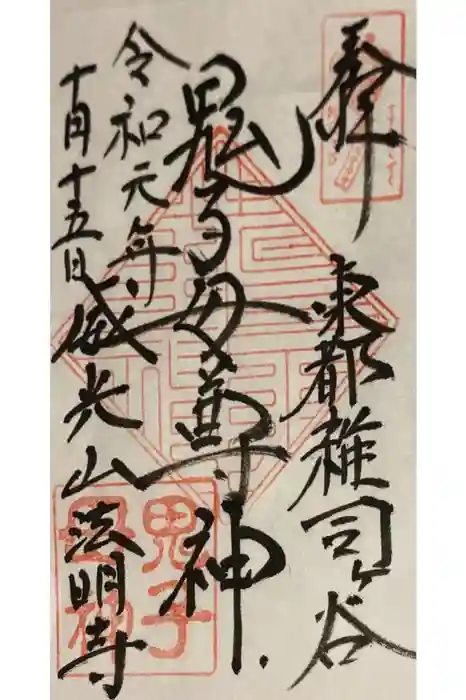 奉拝
東都雑司ヶ谷
鬼子母尊神
令和元年
十月十五日
威光山法明寺
鬼子
母神